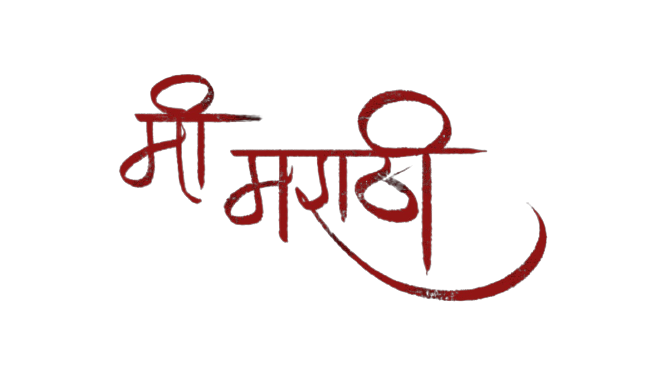 मी मराठी